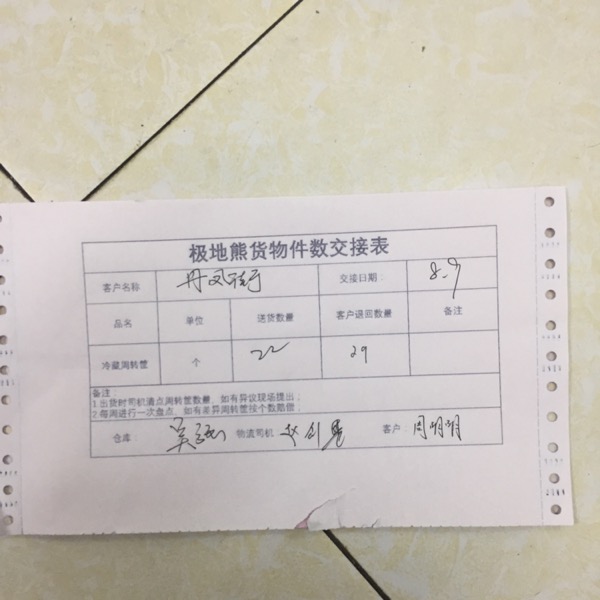 极地熊货物件数交接表
客户名称 丹凤街 交接日期: 8.9
品名 单位 送货数量 客户退回数量 备注
冷藏周转筐 个 22 29
备注:
1.出货时司机清点周转筐数量,如有异议现场提出;
2.每周进行一次盘点,如有差异周转筐按个数赔偿;
仓库: 物流司机: 客户 周明明